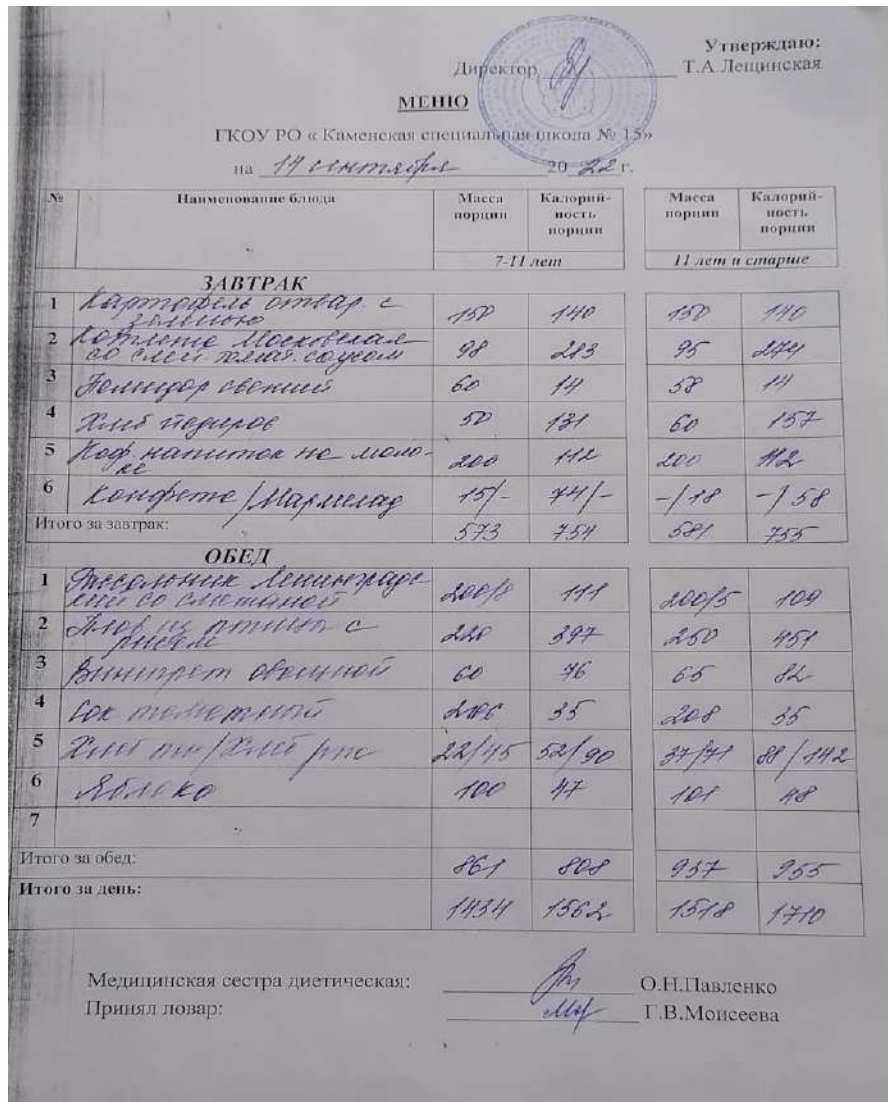 Утверждаю:
Директор Т.А.Лещинская
МЕНЮ
ГКОУ РО « Каменская специальная школа № 15»
на 14 сентября 2022 г.
№ Наименование блюда Масса порции Калорий-ность порции Масса порции Калорий-ность порции
7-11 лет 11 лет и старше
ЗАВТРАК
1 Картофель отвар. с
зеленью 150 140 150 140
2 Котлета Московская
со слив. томат. соусом 98 283 95 274
3 Помидор свежий 60 14 58 14
4 Хлеб йодиров 50 131 60 157
5 Коф. напиток на моло-
ке 200 112 200 112
6 Конфета/Мармелад 15/- 74/- -/18 -/58
Итого за завтрак: 573 754 581 755
ОБЕД
1 Рассольник Ленинградс-
кий со сметаной 200/8 111 200/5 109
2 Плов из птицы с
рисом 220 397 250 451
3 Винегрет овощной 60 76 65 82
4 Сок томатный 206 35 208 35
5 Хлеб пш/Хлеб рж 22/45 52/90 37/71 88/142
6 Яблоко 100 47 101 48
7
Итого за обед: 861 808 937 955
Итого за день: 1434 1562 1518 1710
Медицинская сестра диетическая: О.Н.Павленко
Принял повар: Г.В.Моисеева